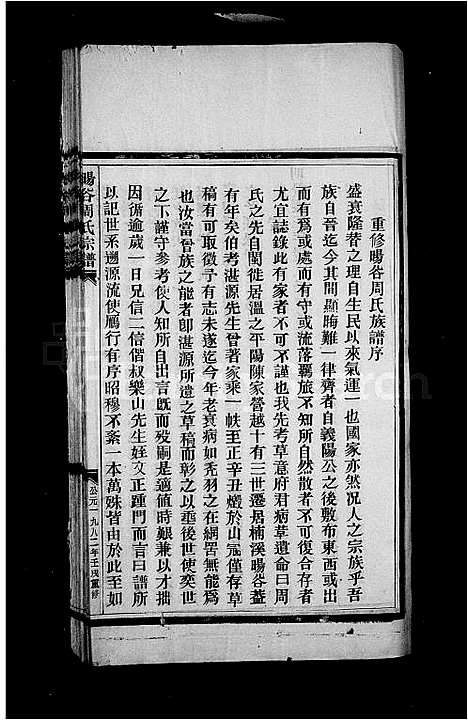 重修暘谷周氏族譜序
盛衰隆替之理自生民以來氣運一也國家亦然况人之宗族乎吾
族自晉迄今其間顯晦難一律齊者自義陽公之後敷布東西或出
而有為或處而有守或流落羈旅不知所自然散者不可復合存者
尤宜誌錄此有家者不可不謹也我先考草意府君病草遺命曰周
氏之先自閩徙居溫之平陽陳家營越十有三世遷居楠溪暘谷蓋
有年矣伯考湛源先生曾著家乘一帙至正辛丑燬於山寇僅存草
稿有可取徵予有志未遂迄今年老衰病如禿羽之在網罟無能為
也汝當晉族之能者卽湛源所遺之草稿而彰之以垂後世使奕世
之下謹守參考使人知所自出言既而歿嗣是適值時艱兼以才拙
因循逾歲一日兄信二偕叔樂山先生姪文正踵門而言曰譜所
以記世系遡源流使鴈行有序昭穆不紊一本萬殊皆由於此至如
暘谷周氏宗譜
公元一九八二年壬戌重修